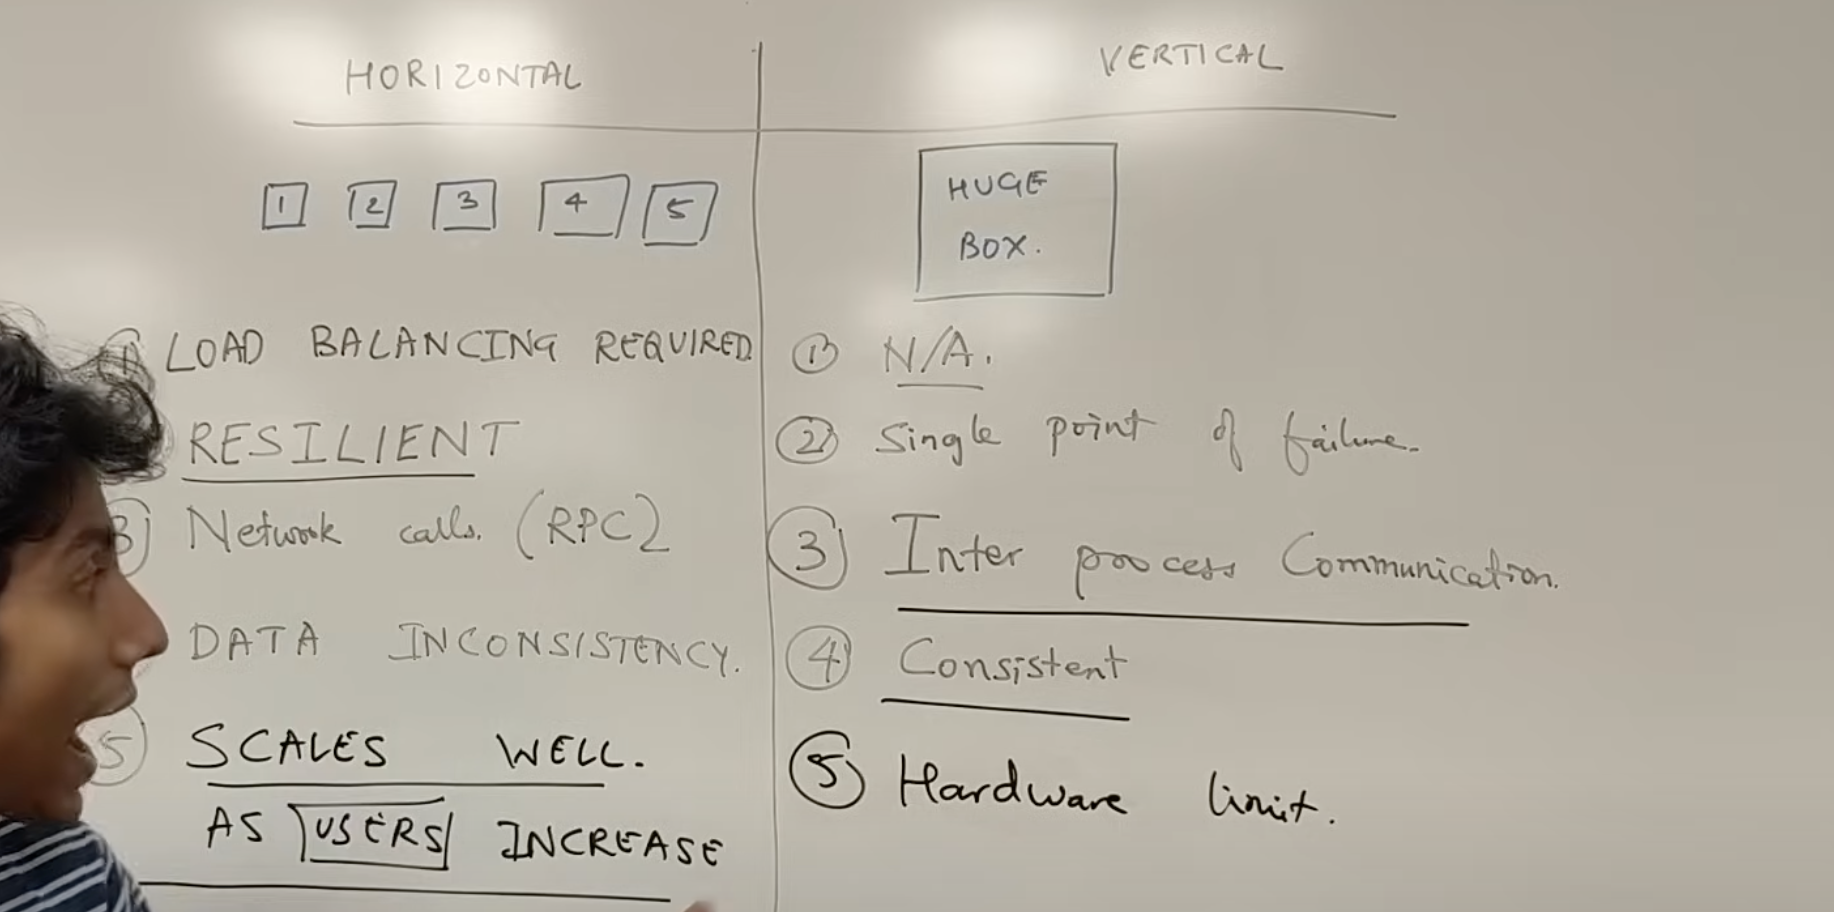 HORIZONTAL
1 2 3 4 5
1) LOAD BALANCING REQUIRED
RESILIENT
3) Network calls. (RPC)
DATA INCONSISTENCY.
5) SCALES WELL.
AS USERS INCREASE
VERTICAL
HUGE
BOX.
1) N/A.
2) Single point of failure.
3) Inter process Communication.
4) Consistent
5) Hardware limit.